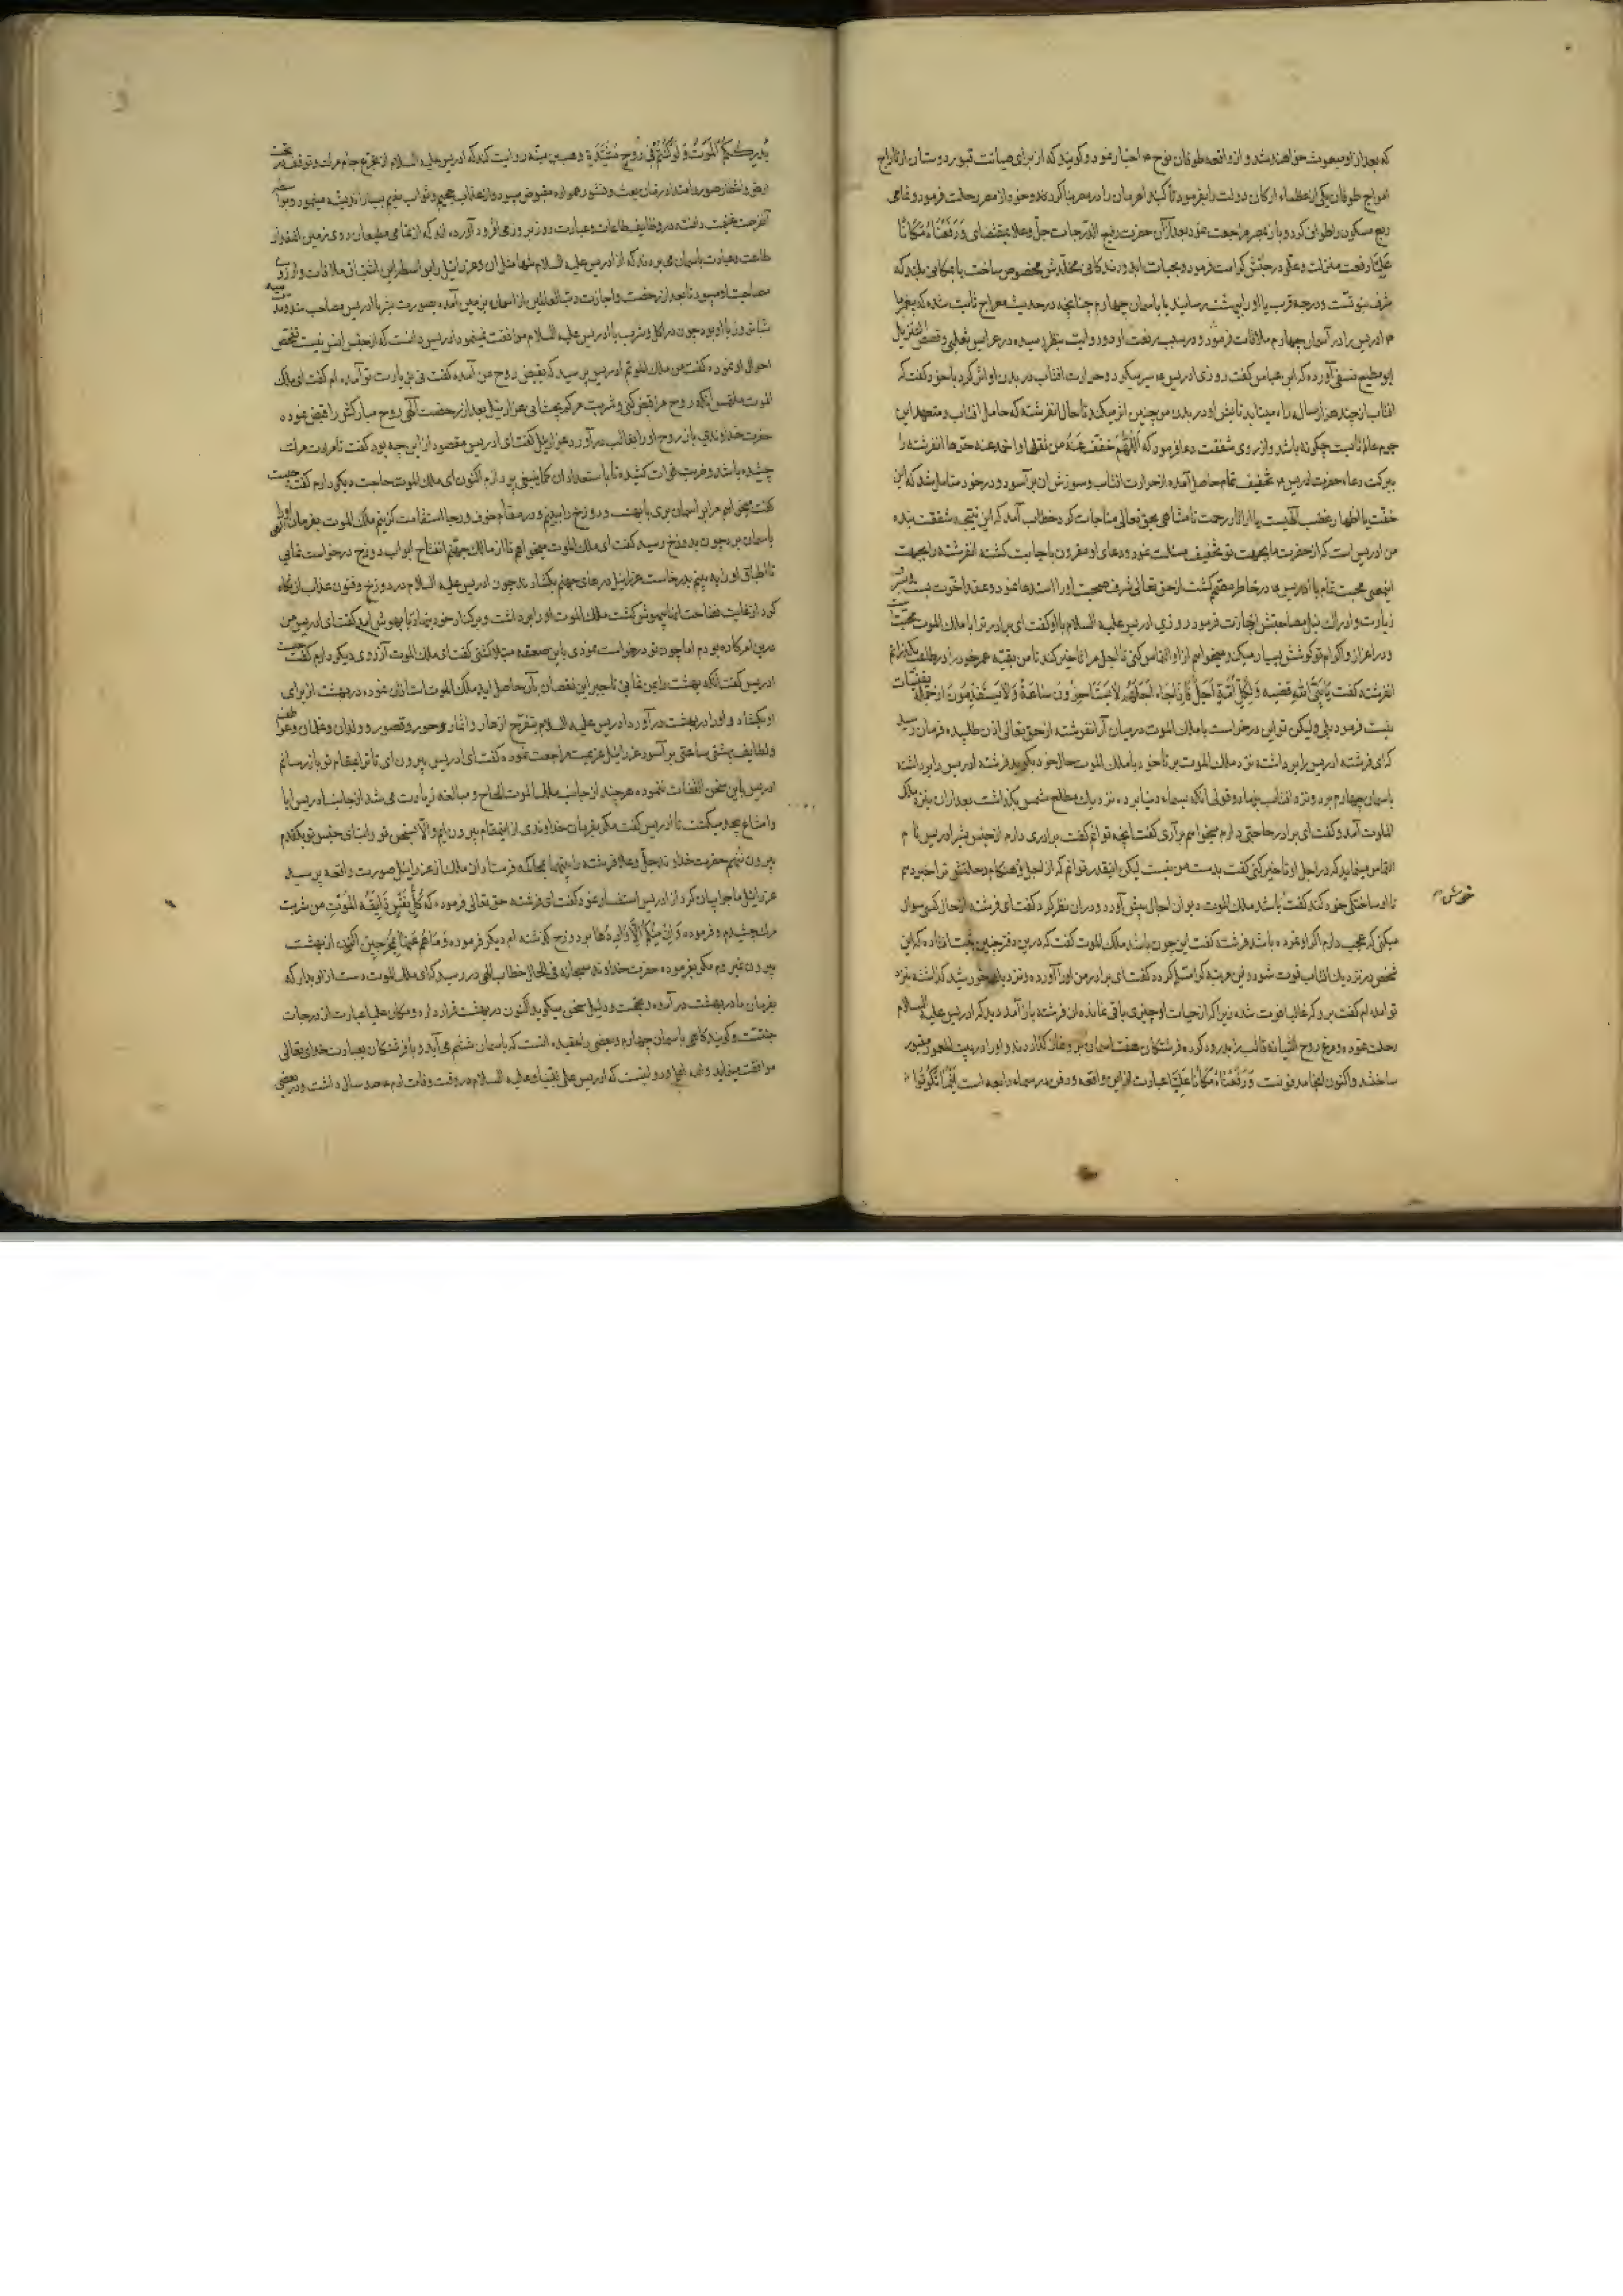 که بعد از او مبعوث خواهند شد و از واقعه طوفان نوح ع اخبار نمود و گویند که از برای صیانت قبور دوستان از تاراج
امواج طوفان یکی از عظماء ارکان دولت را بفرمود تا گنبد اهرمان را در مصر بنا کردند و خود از مصر رحلت فرمود و تمامی
ربع مسکون را طواف کرد و باز بمصر مراجعت نمود بعد از آن حضرت رفیع الدرجات جل و علا بمقتضای وَرَفَعْنَاهُ مَكَانًا
عَلِيًّا رفعت منزلت و علو درجتش کرامت فرمود و بحیات ابد و زندگانی مخلدش مخصوص ساخت یا مکانی بلند که
شرف نبوتست و درجه قرب یا او را ببهشت رسانید یا باسمان چهارم چنانچه در حدیث معراج ثابت شده که پیغمبر ما
ع ادریس را در آسمان چهارم ملاقات فرمود و در سبب رفعت او دو روایت بنظر رسیده در عرایس ثعلبی و قصص التنزیل
ابو مطیع نسفی آورده که ابن عباس گفت روزی ادریس ع سیر میکرد و حرارت افتاب در بدن او اثر کرد با خود گفت که
افتاب از چند هزار ساله راه میتابد تابش او در بدن من چنین اثر میکند تا حال انفرشته که حامل افتاب و متعهد این
جرم عالم تابست چگونه باشد و از روی شفقت دعا فرمود که اَللّٰهُمَّ خَفِّفْ عَنْهُ من ثقلها و احمد عنه حرها انفرشته را
ببرکت دعاء حضرت ادریس ع تخفیف تمام حاصل آمده از حرارت افتاب و سوزش ان بر آسود و در خود متامل شد که این
خفت یا اظهار غضب الهیست یا از اثار رحمت نامتناهی بحق تعالی مناجات کرد خطاب آمد که این نتیجه شفقت بنده
من ادریس است که از حضرت ما بجهت تو تخفیف مسئلت نمود و دعای او مقرون باجابت گشته انفرشته را بجهت
اینمعنی محبت تمام با ادریس ع در خاطر متمکن گشت از حق تعالی شرف صحبت او را استدعا نمود و عقد اخوت بست
زیارت و ادراک نیل مصاحبتش اجازت فرمود روزی ادریس علیه السلام با او گفت ای برادر ترا با ملک الموت محبتها
و در اعزاز و اکرام تو کوشش بسیار میکند میخواهم از او التماس کنی تا اجل مرا تاخیر کند تا من بقیه عمر خود را در طاعت بگذرانم
انفرشته گفت یا نبی الله قضیه وَلِكُلِّ أُمَّةٍ أَجَلٌ فَإِذَا جَاءَ أَجَلُهُمْ لَا يَسْتَأْخِرُونَ سَاعَةً وَلَا يَسْتَقْدِمُونَ از جمله یقینیات
نیست فرمود بلی ولیکن تو این درخواست با ملک الموت در میان آر انفرشته از حق تعالی اذن طلبیده فرمان رسید
که ای فرشته ادریس را برداشته نزد ملک الموت بر تا خود با ملک الموت حال خود بگوید فرشته ادریس را برداشته
باسمان چهارم برد و نزد افتاب بنهاد و قولی انکه بسماء دنیا برده نزدیک مطلع شمس بگذاشت بعد از ان بنزد ملک
الموت آمد و گفت ای برادر حاجتی دارم میخواهم بر آری گفت انچه توانم گفت برادری دارم از جنس بشر ادریس نام
التماس مینماید که در اجل او تاخیر کنی گفت بدست من نیست لیکن اینقدر توانم که از اجل و هنگام رحلتش ترا خبر دهم
تا او ساختگی خود کند گفت باشد ملک الموت دیوان اجال پیش آورد و در ان نظر کرد گفت ای فرشته از حال کسی سوال
میکنی که عجب دارم اگر او نمرده باشد فرشته گفت این چون باشد ملک الموت گفت که درین دفتر چنین ثبت افتاده که این
شخص در نزدیک افتاب فوت شود گفت ای برادر من او را آورده و نزدیک خورشید گذاشته نزد
تو آمده ام گفت برو که غالبا فوت شده زیرا که از حیات او چیزی باقی نمانده ان فرشته باز آمد دید که ادریس علیه السلام
رحلت نموده و مرغ روح اشیانه قالب را بدرود کرده فرشتگان هفت اسمان بر وی نماز گذاردند و او را در بیت المعمور مقبور
ساختند و اکنون انجا مدفونست وَرَفَعْنَاهُ مَكَانًا عَلِيًّا عبارت از این واقعه و دفن در سماء رابعه است أَيْنَمَا تَكُونُوا
خورشید
يُدْرِككُّمُ الْمَوْتُ وَلَوْ كُنتُمْ فِي بُرُوجٍ مُشَيَّدَةٍ وهب بن منبه روایت کند که ادریس علیه السلام از تجرع جام مرگ و توقف در تحت
طاعت و عبادت باسمان می بردند که از ادریس علیه السلام تنها مثل ان و عزرائیل را بواسطه این اشتیاق ملاقات و آرزوی
مصاحبت او میبود تا بعد از رخصت و اجازت رب العالمین از اسمان بزمین آمده بصورت بشر با ادریس مصاحب شد
شبانروز با او بود چون در اکل و شرب با ادریس علیه السلام موافقت نمینمود ادریس دانست که از جنس انس نیست تفحص
احوال او نموده گفت من ملک الموتم ادریس پرسید که بقبض روح من آمده گفت نی بزیارت تو آمده ام گفت ای ملک
الموت ملتمس آنکه روح مرا قبض کنی و شربت مرگم بچشانی عزرائیل بعد از رخصت الهی روح مبارکش را قبض نموده
حضرت خداوندی باز روح او را بقالب در آورد عزرائیل گفت ای ادریس مقصود از این چه بود گفت تا مرارت مرگ
چشیده باشم و ضربت غمرات کشیده تا باستعداد ان کما ینبغی پردازم اکنون ای ملک الموت حاجت دیگر دارم گفت چیست
گفت میخواهم مرا بر اسمان بری تا بهشت و دوزخ را ببینم و در مقام خوف و رجا استقامت گزینم ملک الموت بفرمان الهی او را
باسمان برد چون بدوزخ رسید گفت ای ملک الموت میخواهم تا از مالک جهنم انفتاح ابواب دوزخ درخواست نمایی
تا اطباق او را ببینم بدرخواست عزرائیل درهای جهنم بگشادند چون ادریس علیه السلام در دوزخ و فنون عذاب او نگاه
کرد از غایت فضاحت انها بیهوش گشت ملک الموت او را برداشت و بر کنار خود بنهاد تا بهوش آمد گفت ای ادریس من
درین امر کاره بودم اما چون تو درخواست نمودی باین صعقه مبتلا گشتی گفت ای ملک الموت آرزوی دیگر دارم گفت چیست
ادریس گفت آنکه بهشت را بمن نمایی تا جبر این نقصان بآن حاصل اید ملک الموت استاذان نموده در بهشت از برای
او بگشاد و او را در بهشت در آورد ادریس علیه السلام بتفرج ازهار و اثمار و حور و قصور و ولدان و غلمان
و لطایف بهشتی ساعتی بر آسود عزرائیل عزیمت مراجعت نموده گفت ای ادریس بیرون ای تا ترا بمقام تو باز رسانم
ادریس باین سخن التفات ننموده هر چند از جانب ملک الموت الحاح و مبالغه زیادت می شد از جانب ادریس ابا
و امتناع بیحد میگشت تا ادریس گفت مگر بفرمان خداوندی از اینمقام بیرون ایم والا بسخن تو و ابنای جنس تو یکقدم
بیرون ننهم حضرت خداوند جل و علا فرشته را بمحاکمه فرستاد ان ملک از عزرائیل صورت واقعه پرسید
عزرائیل ماجرا بیان کرد از ادریس استفسار نمود گفت ای فرشته حق تعالی فرموده که كُلُّ نَفْسٍ ذَائِقَةُ الْمَوْتِ من شربت
مرگ چشیدم و فرموده وَإِنْ مِنْكُمْ إِلَّا وَارِدُهَا بر دوزخ گذشته ام دیگر فرموده وَمَا هُمْ عَنْهَا بِمُخْرَجِينَ اکنون از بهشت
بیرون نمیروم مگر بفرموده حضرت خداوند سبحانه فی الحال خطاب الهی در رسید که ای ملک الموت دست از او بدار که
بفرمان ما در بهشت در آمده و بحجت و دلیل سخن میگوید اکنون در بهشت قرار دارد و مکان علیا عبارت از درجات
جنتست و گویند گاهی باسمان چهارم و بعضی را عقیده انست که باسمان ششم می آید و با فرشتگان بعبادت خدای تعالی
موافقت مینماید که ادریس علی نبینا و علیه السلام در وقت وفات ادم صد سال داشت و بعضی